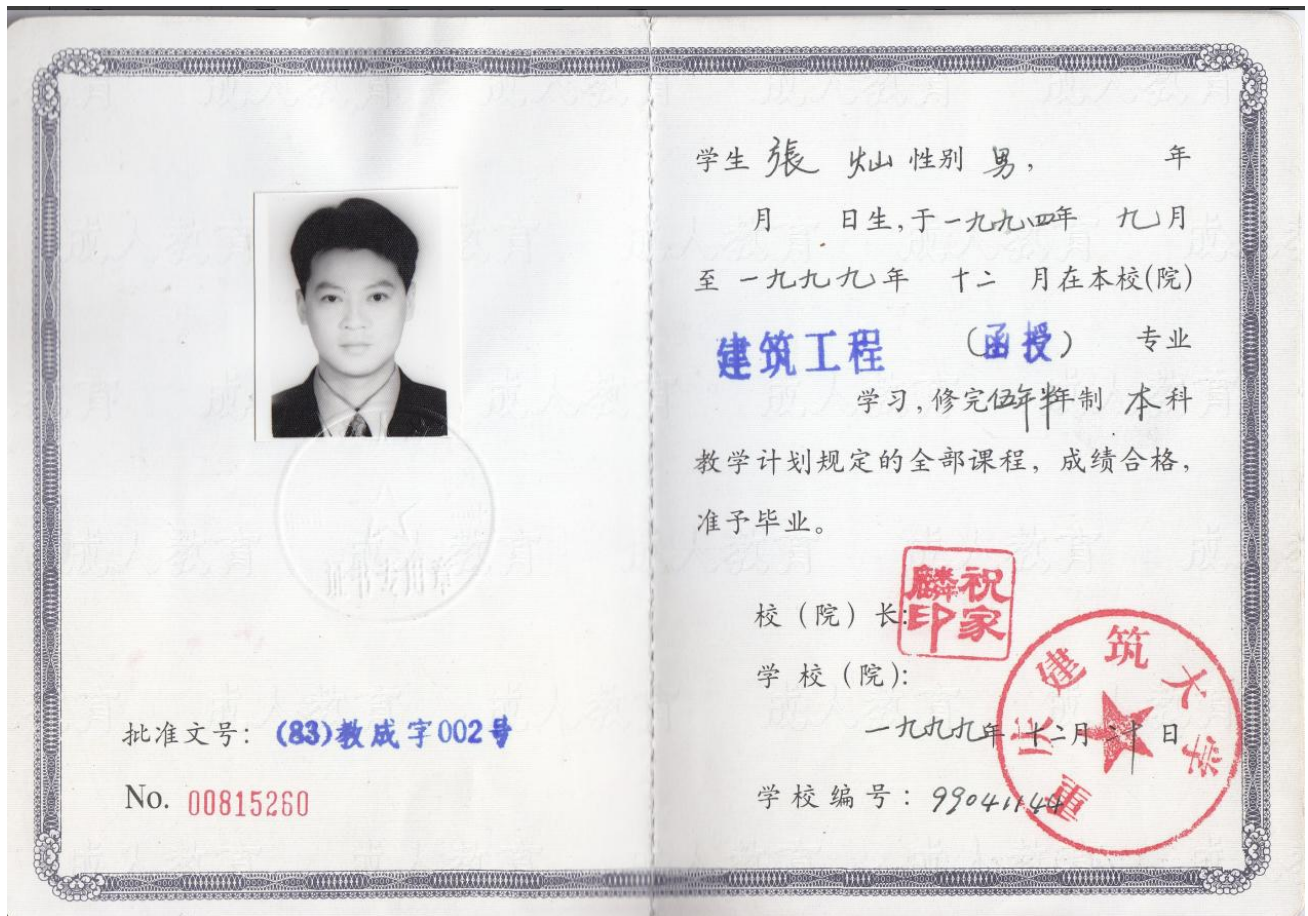 批准文号：(83)教成字002号
No. 00815260
学生 張 灿 性别 男， 年
月 日生，于一九九四年 九月
至 一九九九年 十二 月在本校(院)
建筑工程 (函授) 专业
学习，修完伍年半年制 本科
教学计划规定的全部课程，成绩合格，
准予毕业。
校（院）长：
祝家麟印
学 校（院）：
重庆建筑大学
一九九九年 十二月 二十 日
学校编号：99041144
成人教育